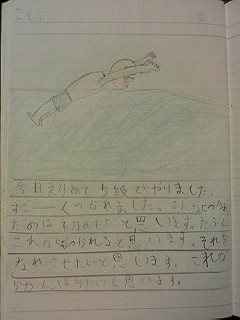 今日初めて5級でやりました。
すごーーくつかれました。こんなにつかれ
たのは初めてだと思います。たぶん
これからつかれると思います。それを
なれさせたいと思います。これか
らがんばりたいと思います。